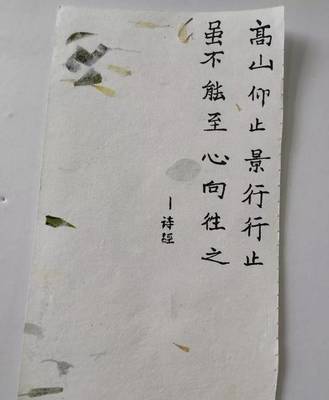 高山仰止 景行行止
虽不能至 心向往之
—诗经